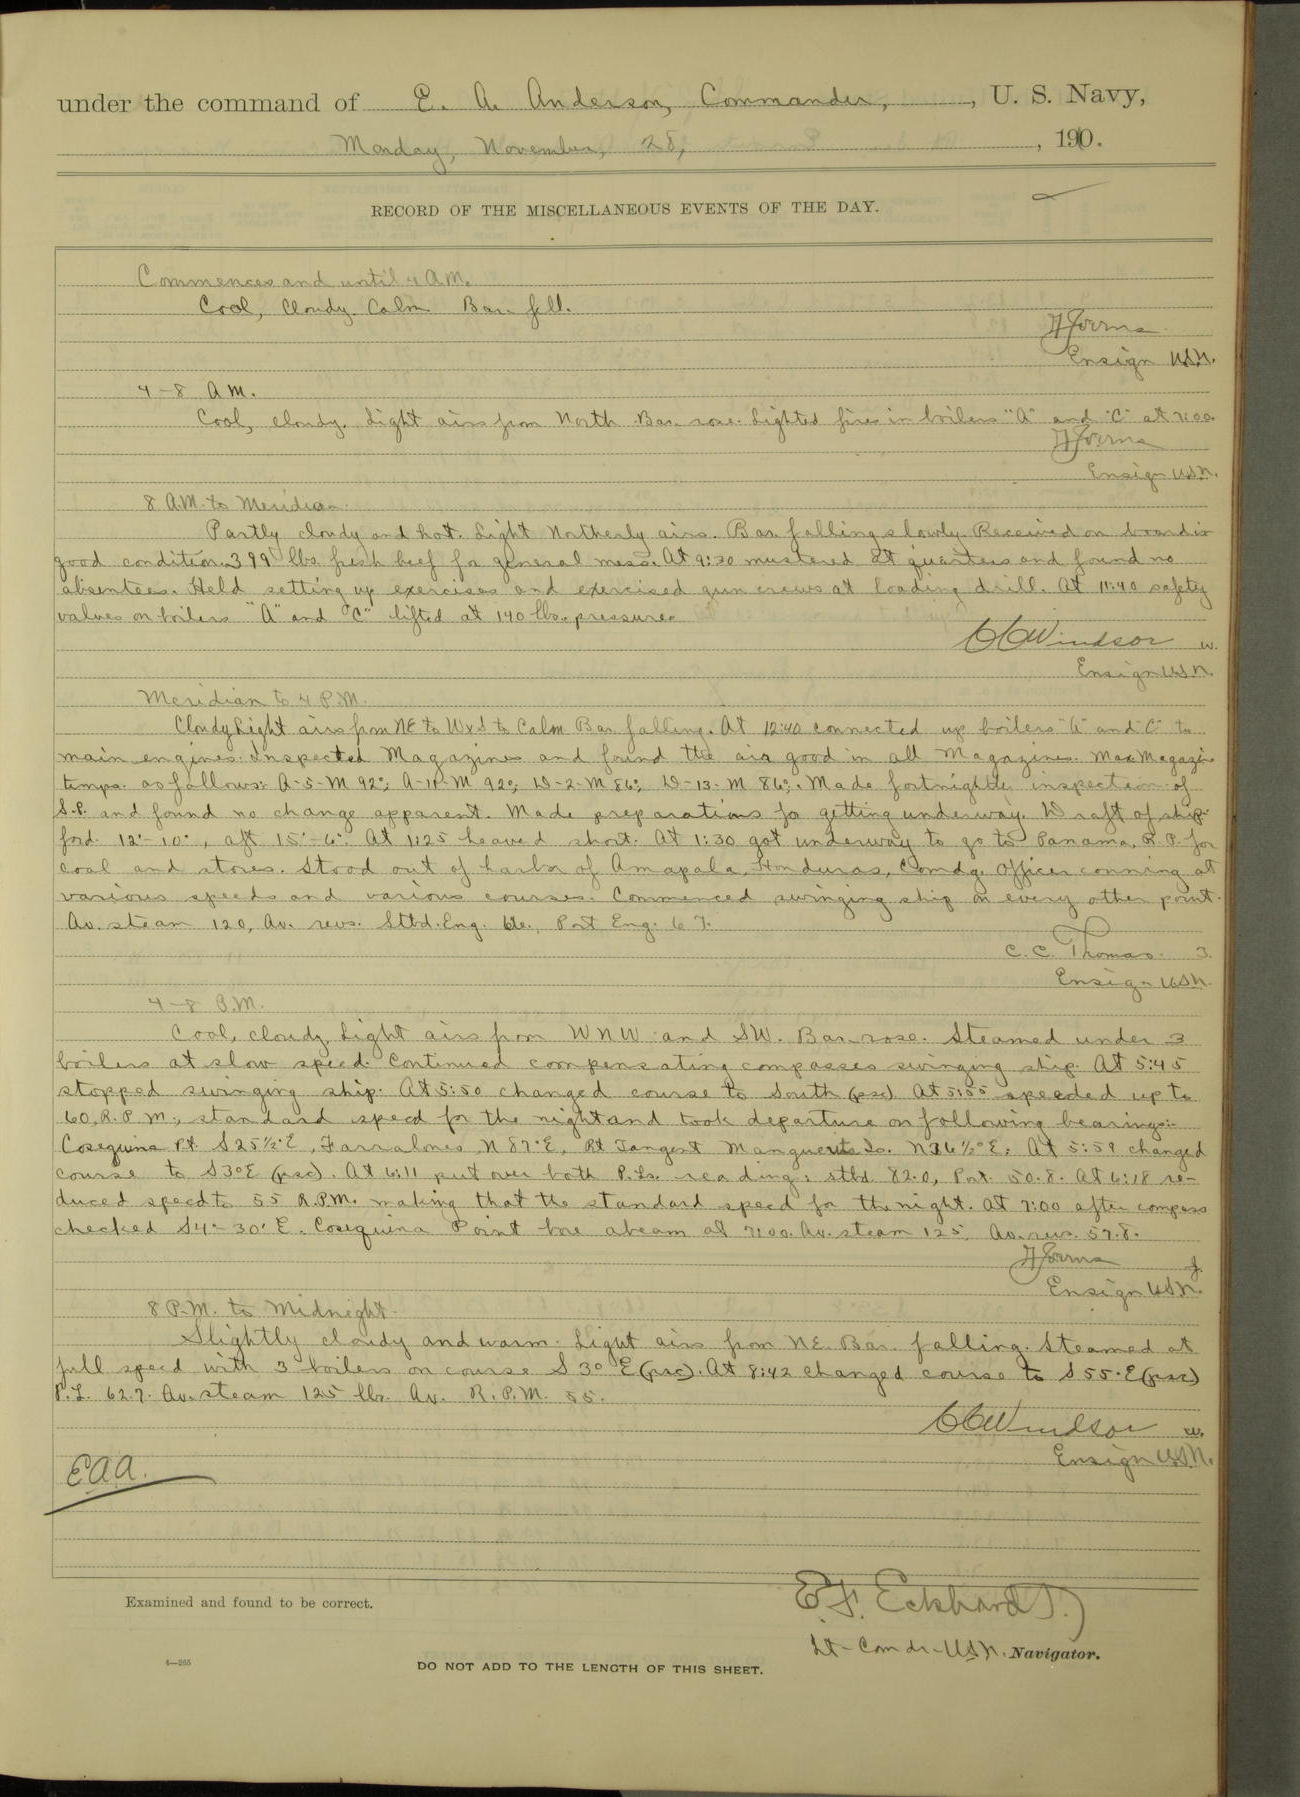 under the command of E. A. Anderson, Commander, , U. S. Navy,
Monday, November, 28, , 1910.
RECORD OF THE MISCELLANEOUS EVENTS OF THE DAY.
Commences and until 4 A.M.
Cool, Cloudy. Calm Bar. fell.
Ensign U.S.N.
4-8 A.M.
Cool, cloudy. Light airs from North. Bar. rose. Lighted fires in boilers "A" and "C" at 7:00.
Ensign U.S.N.
8 A.M. to Meridian.
Partly cloudy and hot. Light Northerly airs. Bar. falling slowly. Received on board in
good condition 399 lbs. fresh beef for general mess. At 9:30 mustered at quarters and found no
absentees. Held setting up exercises and exercised gun crews at loading drill. At 11:40 safety
valves on boilers "A" and "C" lifted at 140 lbs. pressure.
C C Windsor w.
Ensign U.S.N.
Meridian to 4 P.M.
Cloudy Light airs from NE to WxS to Calm Bar. falling. At 12:40 connected up boilers "A" and "C" to
main engines. Inspected Magazines and found the air good in all Magazines. Max Magazine
temps. as follows: A-5-M 92°; A-11-M 92°; D-2-M 86°; D-13-M 86°. Made fortnightly inspection of
S.P. and found no change apparent. Made preparations for getting underway. Draft of ship
ford. 12'-10", aft 15'-6". At 1:25 heaved short. At 1:30 got underway to go to Panama, R.P. for
coal and stores. Stood out of harbor of Amapala, Honduras, Comdg. Officer conning at
various speeds and various courses. Commenced swinging ship on every other point.
Av. steam 120, Av. revs. Stbd. Eng. Port Eng. 67.
C. C. Thomas.
Ensign U.S.N.
4-8 P.M.
Cool, cloudy. Light airs from WNW and SW. Bar. rose. Steamed under 3
boilers at slow speed. Continued compensating compasses swinging ship. At 5:45
stopped swinging ship. At 5:50 changed course to South (psc) At 5:55 speeded up to
60 R.P.M., standard speed for the night and took departure on following bearings:-
Coseguina Pt. S 25½° E, Farralones, N 87° E, Rt Tangent Is. N 36½° E. At 5:59 changed
course to S 3° E (psc). At 6:11 put over both P.Ls. reading: stbd. 82.0, Port. 50.8. At 6:18 re-
duced speed to 55 R.P.M. making that the standard speed for the night. At 7:00 after compass
checked S 4°-30' E. Coseguina Point bore abeam at 7:00. Av. steam 125. Av. revs. 57.8.
Ensign U.S.N.
8 P.M. to Midnight.
Slightly cloudy and warm. Light airs from NE. Bar. falling. Steamed at
full speed with 3 boilers on course S 3° E (psc). At 8:42 changed course to S 55° E (psc)
P.L. 62.7. Av. steam 125 lbs. Av. R.P.M. 55.
C C Windsor w.
Ensign U.S.N.
E.A.A.
Examined and found to be correct.
E. F. Eckhardt.
Lt-Comdr-U.S.N. Navigator.
6—265
DO NOT ADD TO THE LENGTH OF THIS SHEET.